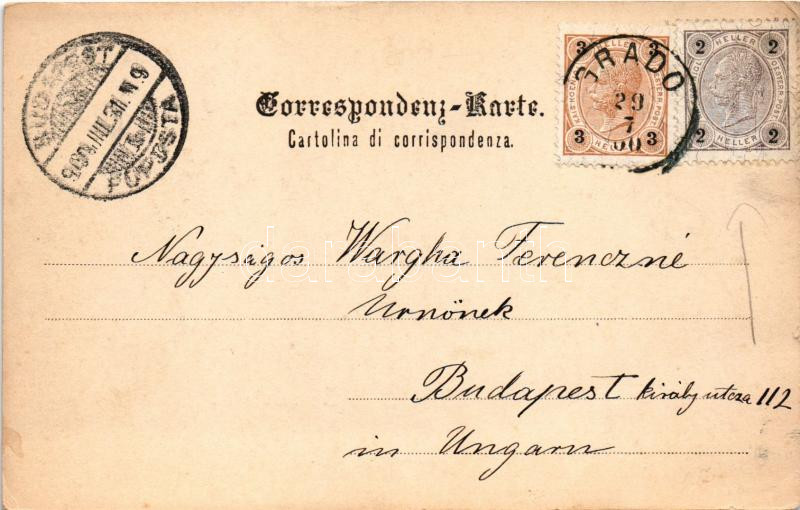 BUDAPEST
FŐPOSTA
3 HELLER 3
3 3
2 HELLER 2
2 HELLER 2
GRADO
29
7
00
Correspondenz-Karte.
Cartolina di corrispondenza.
Nagyságos Wargha Ferenczné
Urnőnek
Budapest király utcza 112
in Ungarn
darabanth